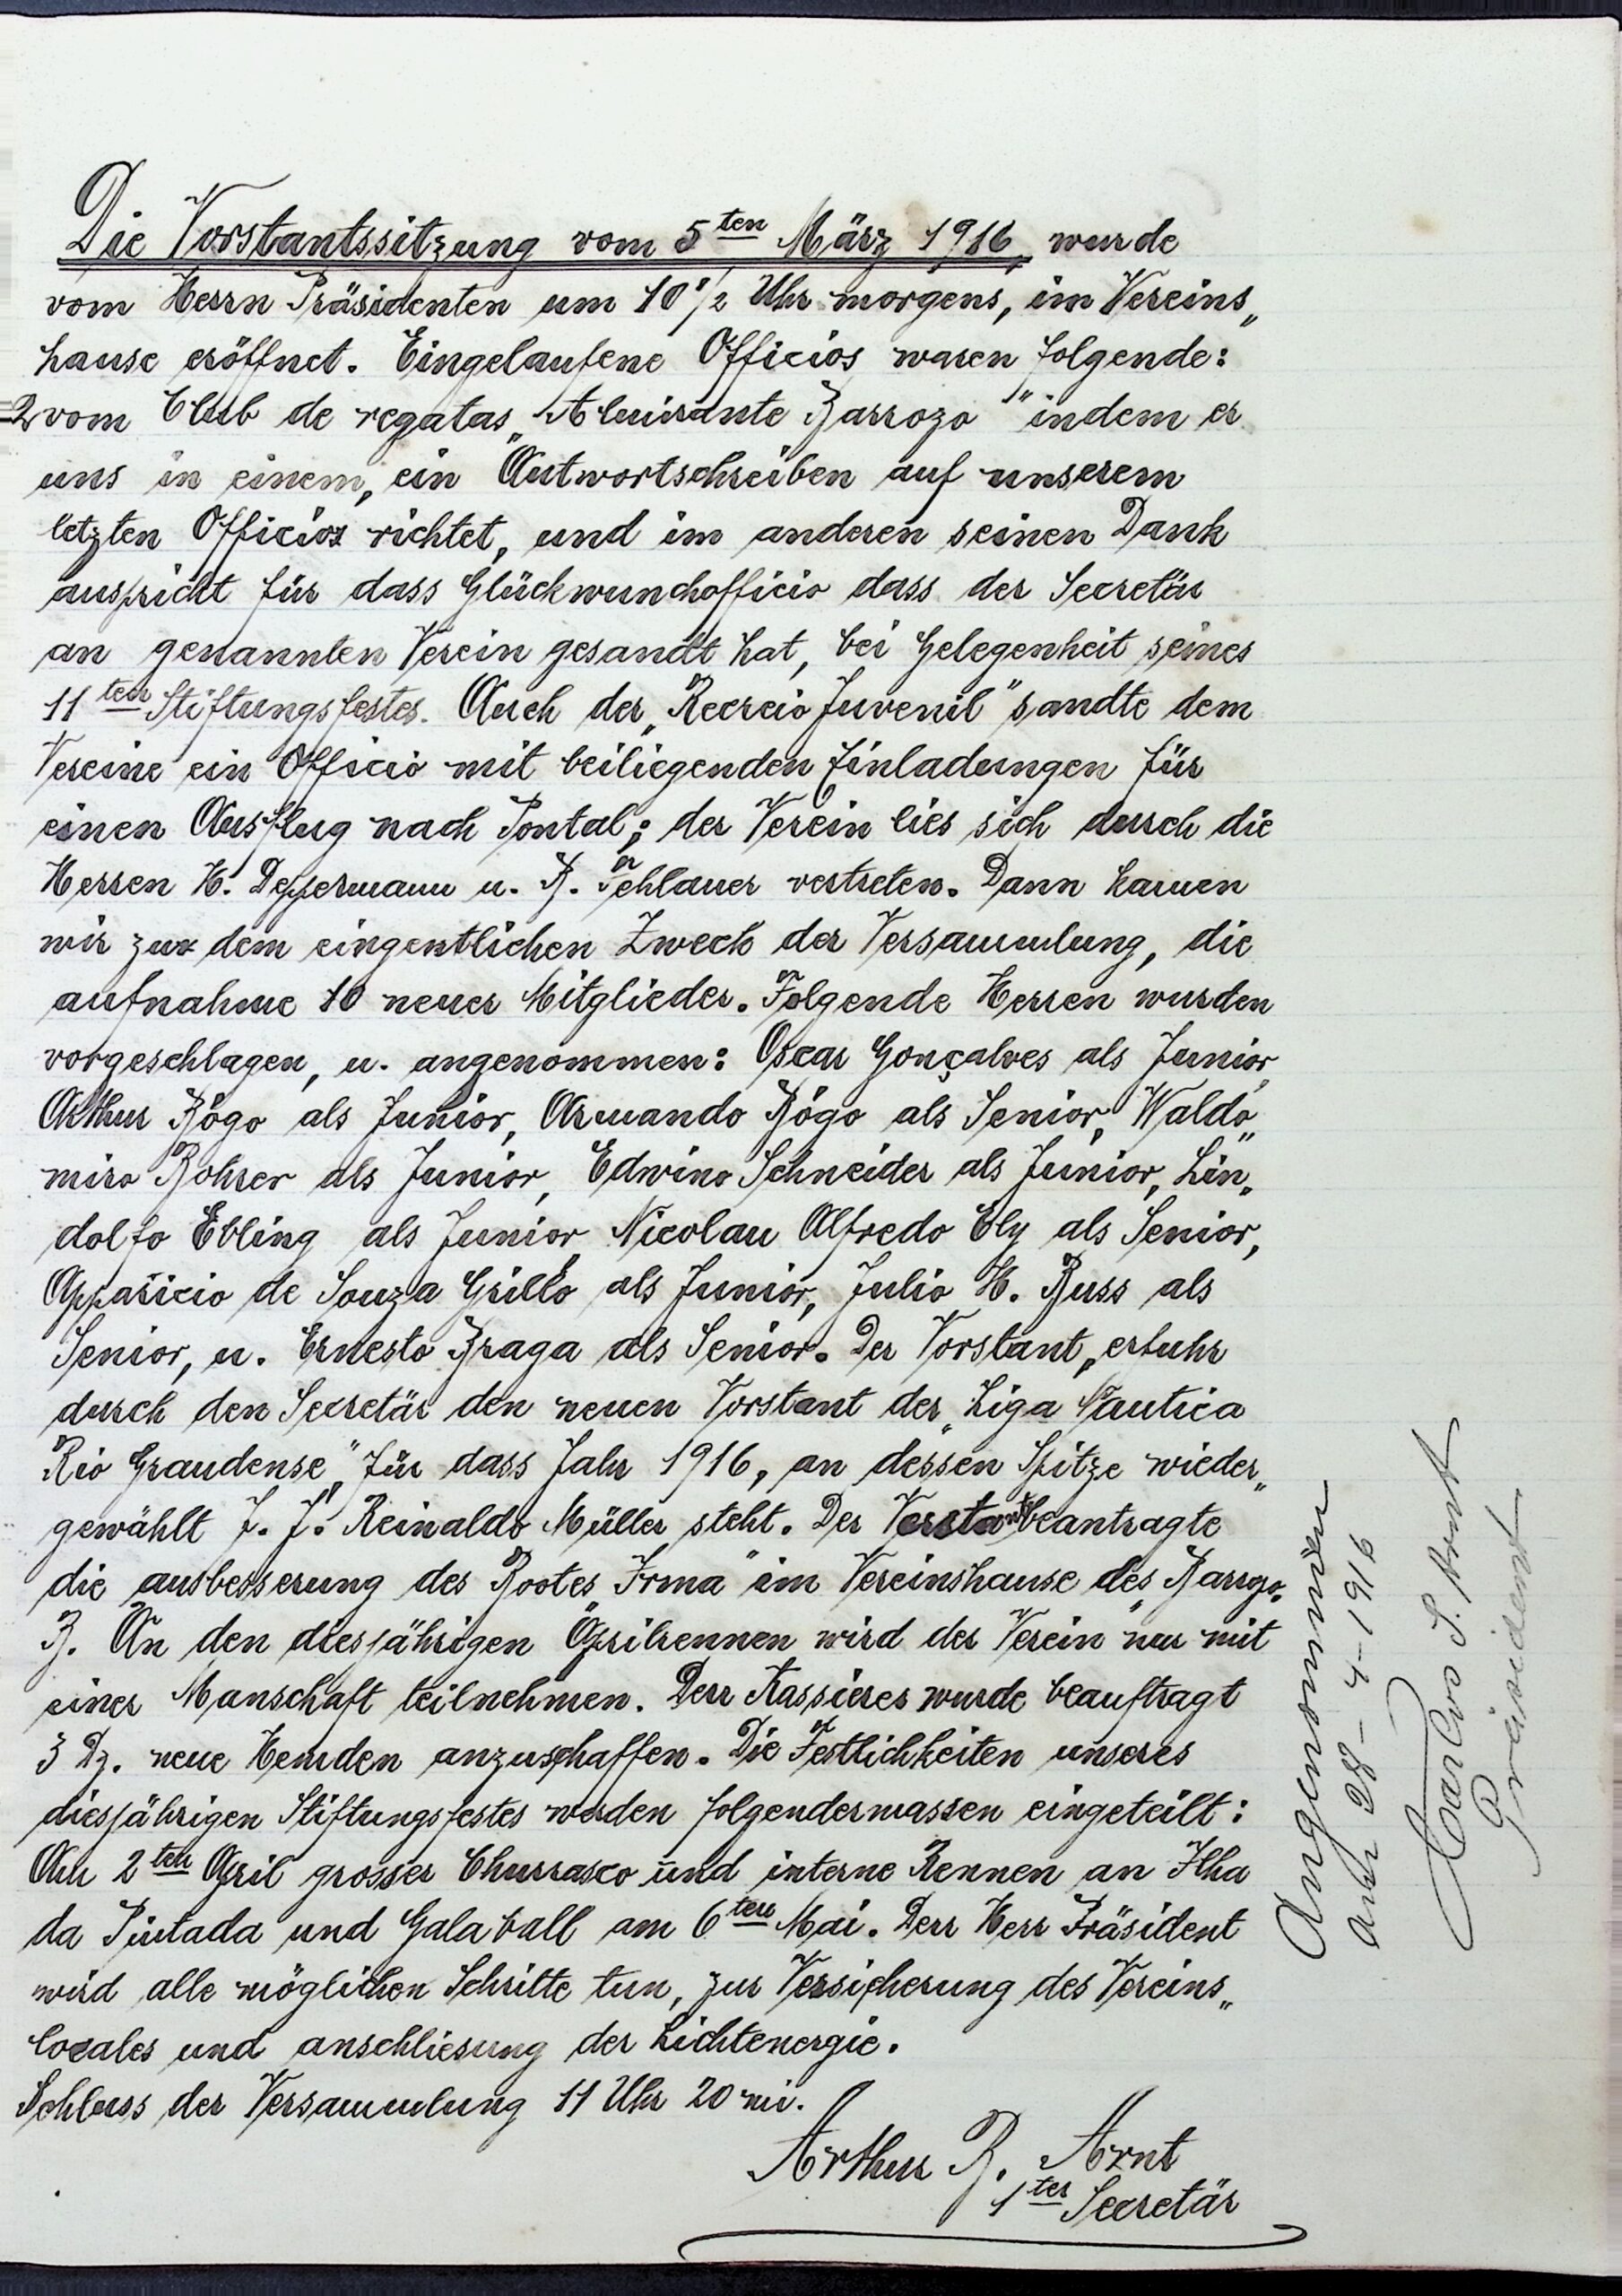 Die Vorstantssitzung vom 5ten März 1916, wurde
vom Herrn Präsidenten um 10 1/2 Uhr morgens, im Vereins„
hause eröffnet. Eingelaufene Officios waren folgende:
2 vom Club de regatas „Almirante Barrozo" indem er
uns in einem, ein Antwortschreiben auf unserem
letzten Officios richtet, und im anderen seinen Dank
auspricht für dass Glückwunchofficio dass der Secretär
an genannten Verein gesandt hat, bei Gelegenheit seines
11ten Stiftungsfestes. Auch der „Recreio Juvenil" sandte dem
Vereine ein Officio mit beiliegenden Einladungen für
einen Ausflug nach Pontal; der Verein lies sich durch die
Herren H. Deppermann u. R. Fehlauer vertreten. Dann kamen
wir zu dem eingentlichen Zweck der Versammlung, die
aufnahme 10 neuer Mitglieder. Folgende Herren wurden
vorgeschlagen, u. angenommen: Oscar Gonçalves als Junior,
Arthur Bögo als Junior, Armando Bögo als Senior, Waldo„
miro Bohrer als Junior, Edwino Schneider als Junior, Lin„
dolfo Ebling als Junior, Nicolau Alfredo Ely als Senior,
Apparicio de Souza Grillo als Junior, Julio H. Buss als
Senior, u. Ernesto Braga als Senior. Der Vorstant, erfuhr
durch den Secretär den neuen Vorstant der „Liga Nautica
Rio Grandense", für dass Jahr 1916, an dessen Spitze wieder„
gewählt J. J. Reinaldo Müller steht. Der Vorstant beantragte
die ausbesserung des Bootes „Irma" im Vereinshause des „Barrozo„
B. An den diesjährigen Aprilrennen wird der Verein nur mit
einer Manschaft teilnehmen. Derr Kassieres wurde beauftragt
3 Dz. neue Hemden anzuschaffen. Die Festlichkeiten unseres
diesjährigen Stiftungsfestes werden folgendermassen eingeteilt:
Am 2ten April grosser Churrasco und interne Rennen an Ilha
da Pintada und Galaball am 6ten Mai. Derr Herr Präsident
wird alle möglichen Schritte tun, zur Versicherung des Vereins„
locales und anschliesung der Lichtenergie.
Schluss der Versammlung 11 Uhr 20 mi.
Arthur B. Arnt
1ter Secretär
Angenommen
am 28-4-1916
Carlos S. Arnt
Präsident